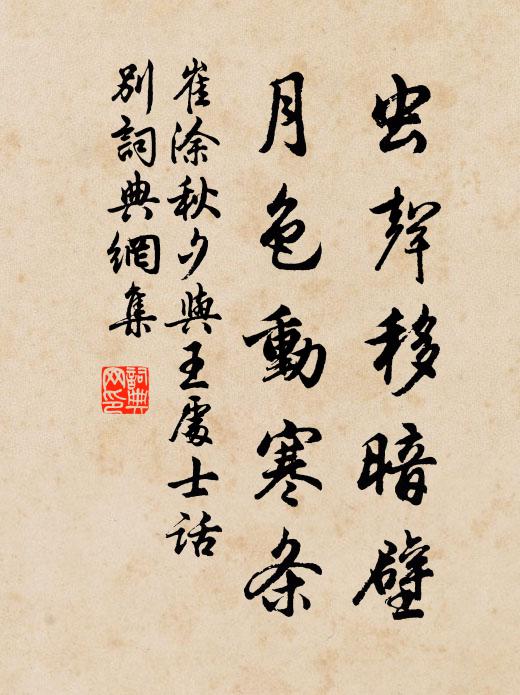 虫聲移暗壁
月色動寒条
崔涂秋夕與王處士话
别詞典網集
詞典网印